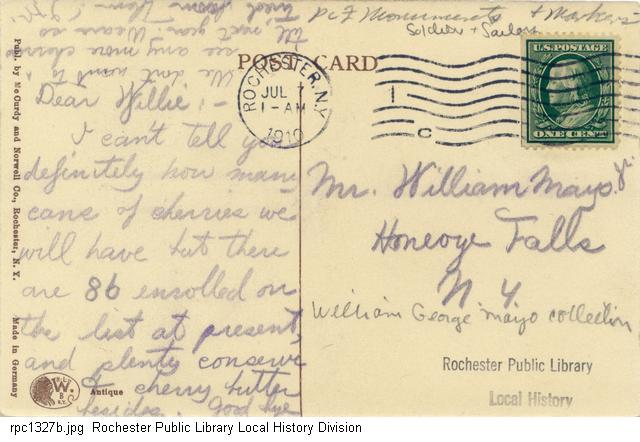 P & F Monuments + Markers
Soldier + Sailors
POST CARD
ROCHESTER, N.Y.
JUL 7
1-AM
1910
U.S. POSTAGE
ONE CENT
Dear Willie:-
I can't tell you
definitely how many
cans of cherries we
will have but there
are 86 enrolled on
the list at present,
and plenty conserve
& cherry butter
besides. Good bye
till next year. We are so
tired from them
We don't want to
see any more cherries
Mr. William Mayo. Jr.
Honeoye Falls
N. Y.
William George Mayo collection
Rochester Public Library
Local History
Publ. by McCurdy and Norwell Co., Rochester, N. Y.
Made in Germany
W.
B
N.Y.
Antique
rpc1327b.jpg Rochester Public Library Local History Division